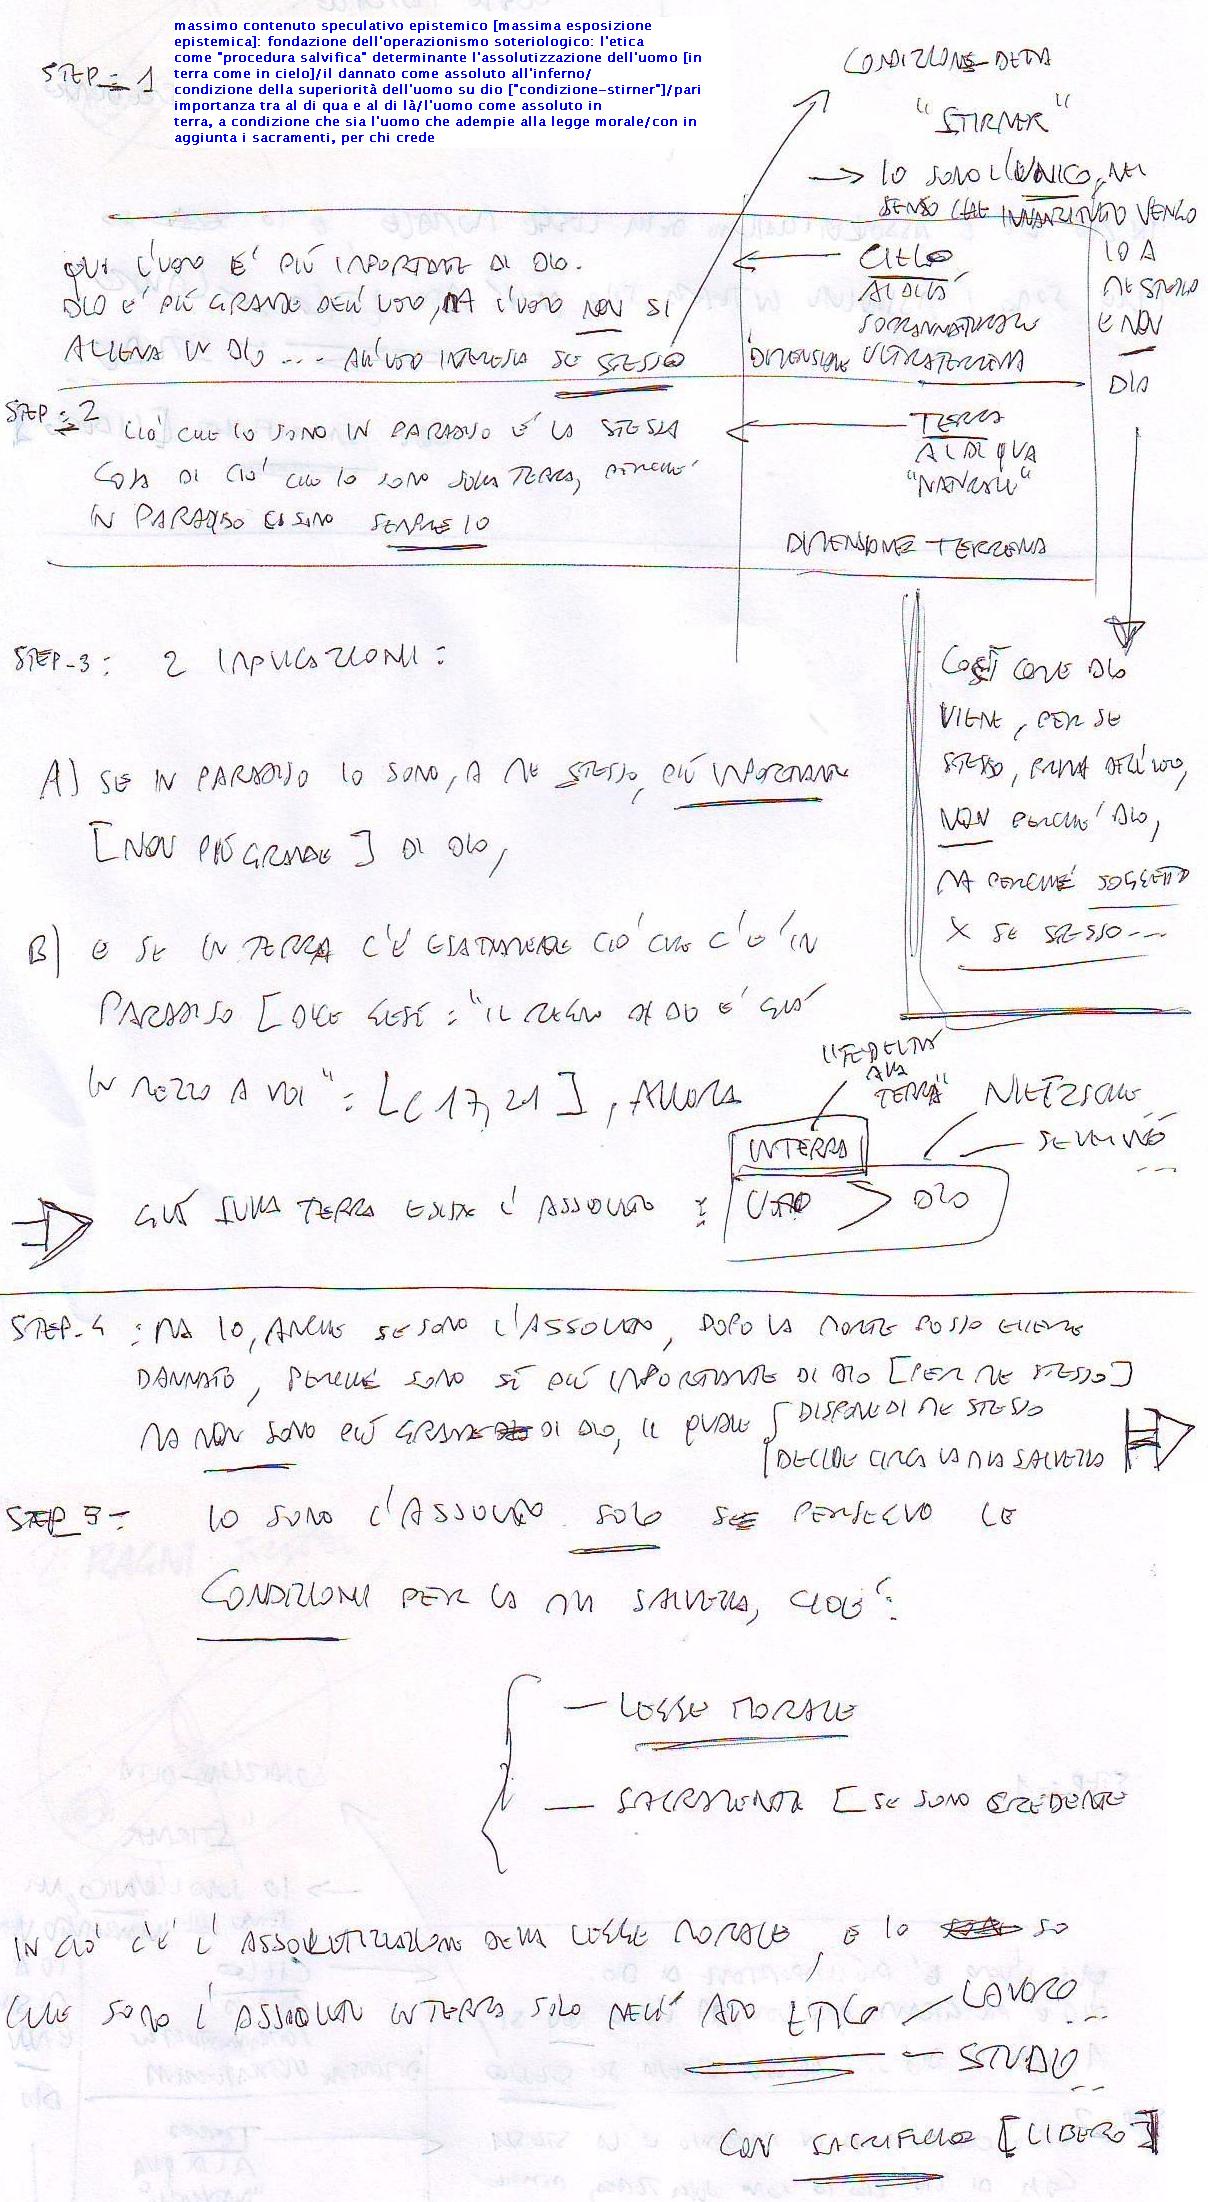 massimo contenuto speculativo epistemico [massima esposizione
epistemica]: fondazione dell'operazionismo soteriologico: l'etica
come "procedura salvifica" determinante l'assolutizzazione dell'uomo [in
terra come in cielo]/il dannato come assoluto all'inferno/
condizione della superiorità dell'uomo su dio ["condizione-stirner"]/pari
importanza tra al di qua e al di là/l'uomo come assoluto in
terra, a condizione che sia l'uomo che adempie alla legge morale/con in
aggiunta i sacramenti, per chi crede
STEP=1
CONDIZIONE DETTA
"STIRNER"
→ IO SONO L'UNICO, NEL
SENSO CHE INNANZITUTTO VENGO
IO A
ME STESSO
E NON
DIO
QUI L'UOMO E' PIÙ IMPORTANTE DI DIO.
DIO E' PIÙ GRANDE DELL'UOMO, MA L'UOMO NON SI
ALIENA IN DIO .... ALL'UOMO INTERESSA SE STESSO
CIELO
AL DI LÀ
SOPRANNATURALE
DIMENSIONE ULTRATERRENA
STEP=2
CIÒ CHE IO SONO IN PARADISO E' LA STESSA
COSA DI CIÒ CHE IO SONO SULLA TERRA, PERCHE'
IN PARADISO CI SONO SEMPRE IO
TERRA
AL DI QUA
"NATURALE"
DIMENSIONE TERRENA
COSÌ COME DIO
VIENE, PER SE
STESSO, PRIMA DELL'UOMO,
NON PERCHE' DIO,
MA PERCHÉ SOGGETTO
X SE STESSO ....
STEP-3: 2 IMPLICAZIONI:
A) SE IN PARADISO IO SONO, A ME STESSO, PIÙ IMPORTANTE
[NON PIÙ GRANDE] DI DIO,
B) E SE IN TERRA C'È ESATTAMENTE CIÒ CHE C'E' IN
PARADISO [DICE GESÙ: "IL REGNO DI DIO E' GIÀ
IN MEZZO A VOI": LC 17,21], ALLORA
"FEDELTÀ
ALLA
TERRA"
NIETZSCHE
SEVERINO
...
IN TERRA
⇒ GIÀ SULLA TERRA ESISTE L'ASSOLUTO: UOMO > DIO
STEP-4: MA IO, ANCHE SE SONO L'ASSOLUTO, DOPO LA MORTE POSSO ESSERE
DANNATO, PERCHÉ SONO SÌ PIÙ IMPORTANTE DI DIO [PER ME STESSO]
MA NON SONO PIÙ GRANDE DI DIO, IL QUALE { DISPONE DI ME STESSO
DECIDE CIRCA LA MIA SALVEZZA ⇒
STEP_5= IO SONO L'ASSOLUTO SOLO SE PERSEGUO LE
CONDIZIONI PER LA MIA SALVEZZA, CIOE':
— LEGGE MORALE
— SACRAMENTI [SE SONO CREDENTE
IN CIÒ C'E' L'ASSOLUTIZZAZIONE DELLA LEGGE MORALE, E IO SO
CHE SONO L'ASSOLUTO IN TERRA SOLO NELL'ATTO ETICO — LAVORO
...
— STUDIO
...
CON SACRIFICIO [LIBERO]